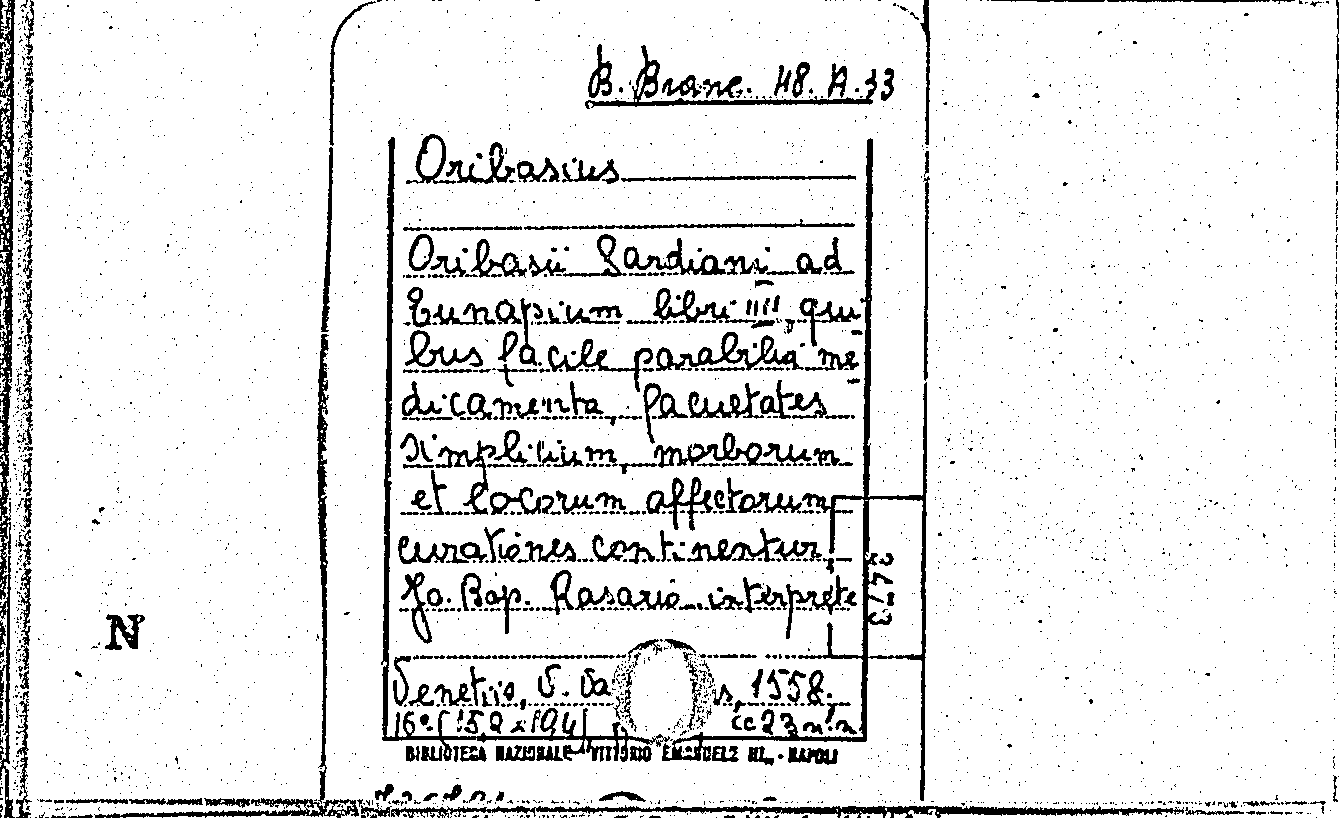 B. Branc. 48. A. 33
Oribasius
Oribasii Sardiani ad
Eunapium libri IIII, qui
bus facile parabilia me
dicamenta, facultates
simplicium, morborum
et locorum affectorum
curationes continentur,
Jo. Bap. Rasario interprete
3473
N
Venetiis, V. Va s, 1558.
16° (15,2 x 9,4) cc 23 n.n.
BIBLIOTECA NAZIONALE VITTORIO EMANUELE III - NAPOLI